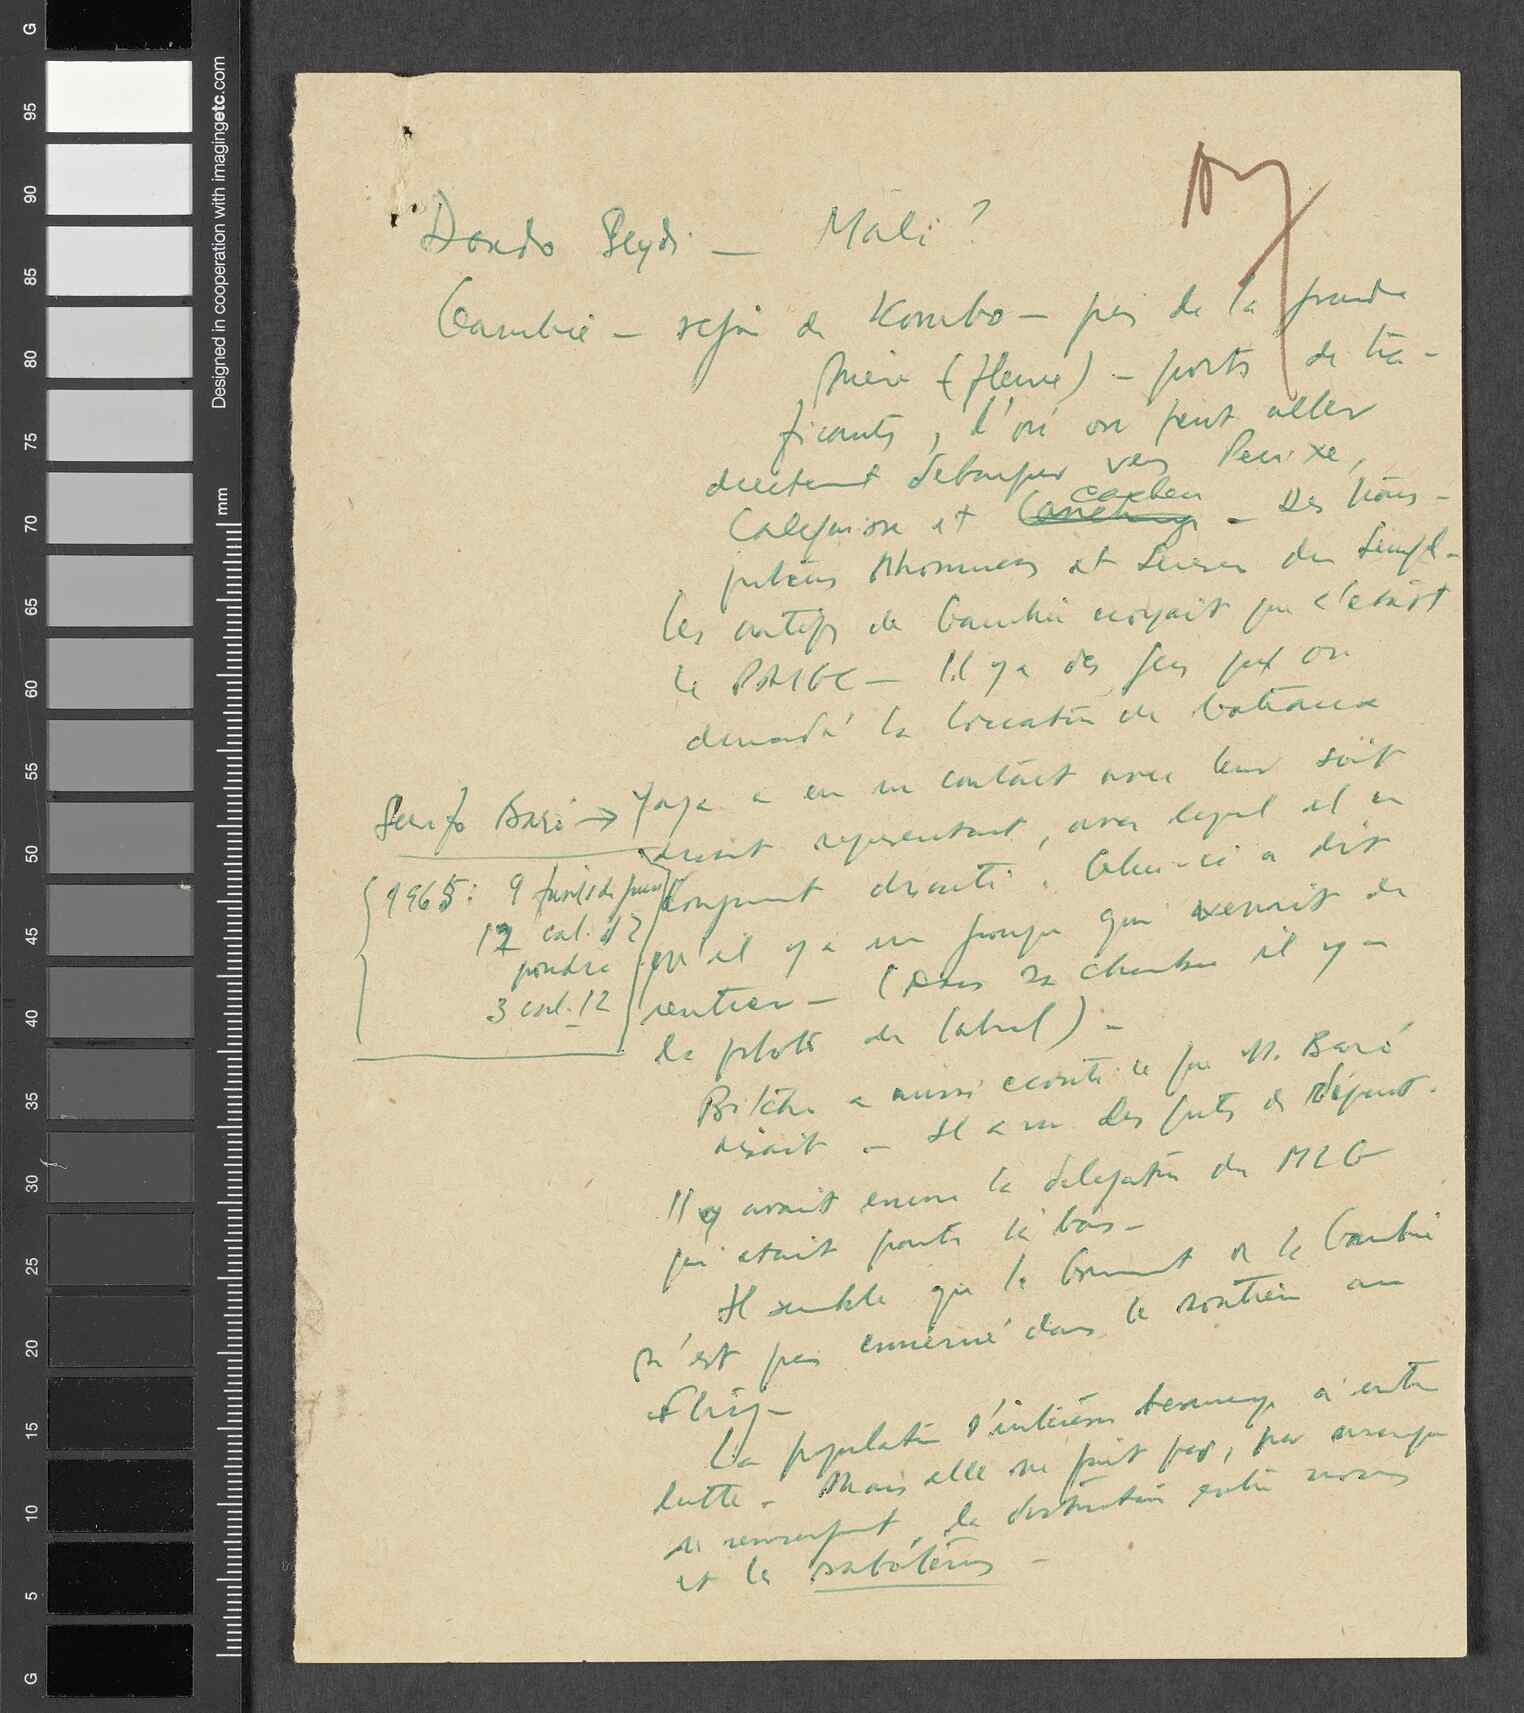 Dondo Seydi — Mali?
Gambie — région de Kombo — près de la grande
Mère (fleuve) — ports de tra-
ficants, d'où on peut aller
directement debarquer vers Pecixe,
Calequisse et Canchungo cacheu — Des trans-
porteurs Nhomincas et Sereres du Sénégal -
les autres de Gambie croyait que c'était
le PAIGC — Il y a des gens qui on
demandé la location de bateaux
Yaya a eu un contact avec leur soit
disant représentant, avec lequel il a
longuement discuté. Celui-ci a dit
qu'il y a un groupe qui venait de
rentrer — (Dans sa chambre il y a
la photo de Cabral) —
a aussi ecouté ce que M. Baré
disait — Il a vu des
Il y avait encore la delegation du MLG
qui etait partie là bas —
Il semble que le Gouvernement de la Gambie
n'est pas concerné dans le soutien au
Fling —
La population s'intéresse beaucoup à cette
lutte. Mais elle ne fait pas, par manque
de renseignement, la distinction entre nous
et les saboteurs —
Baré →
1965: 9 fusils de guerre
17 cal. 12
poudre
3 cal. 12
G
95
90
85
80
75
70
65
60
55
50
45
40
35
30
25
20
15
10
5
G
mm
Designed in cooperation with imagingetc.com